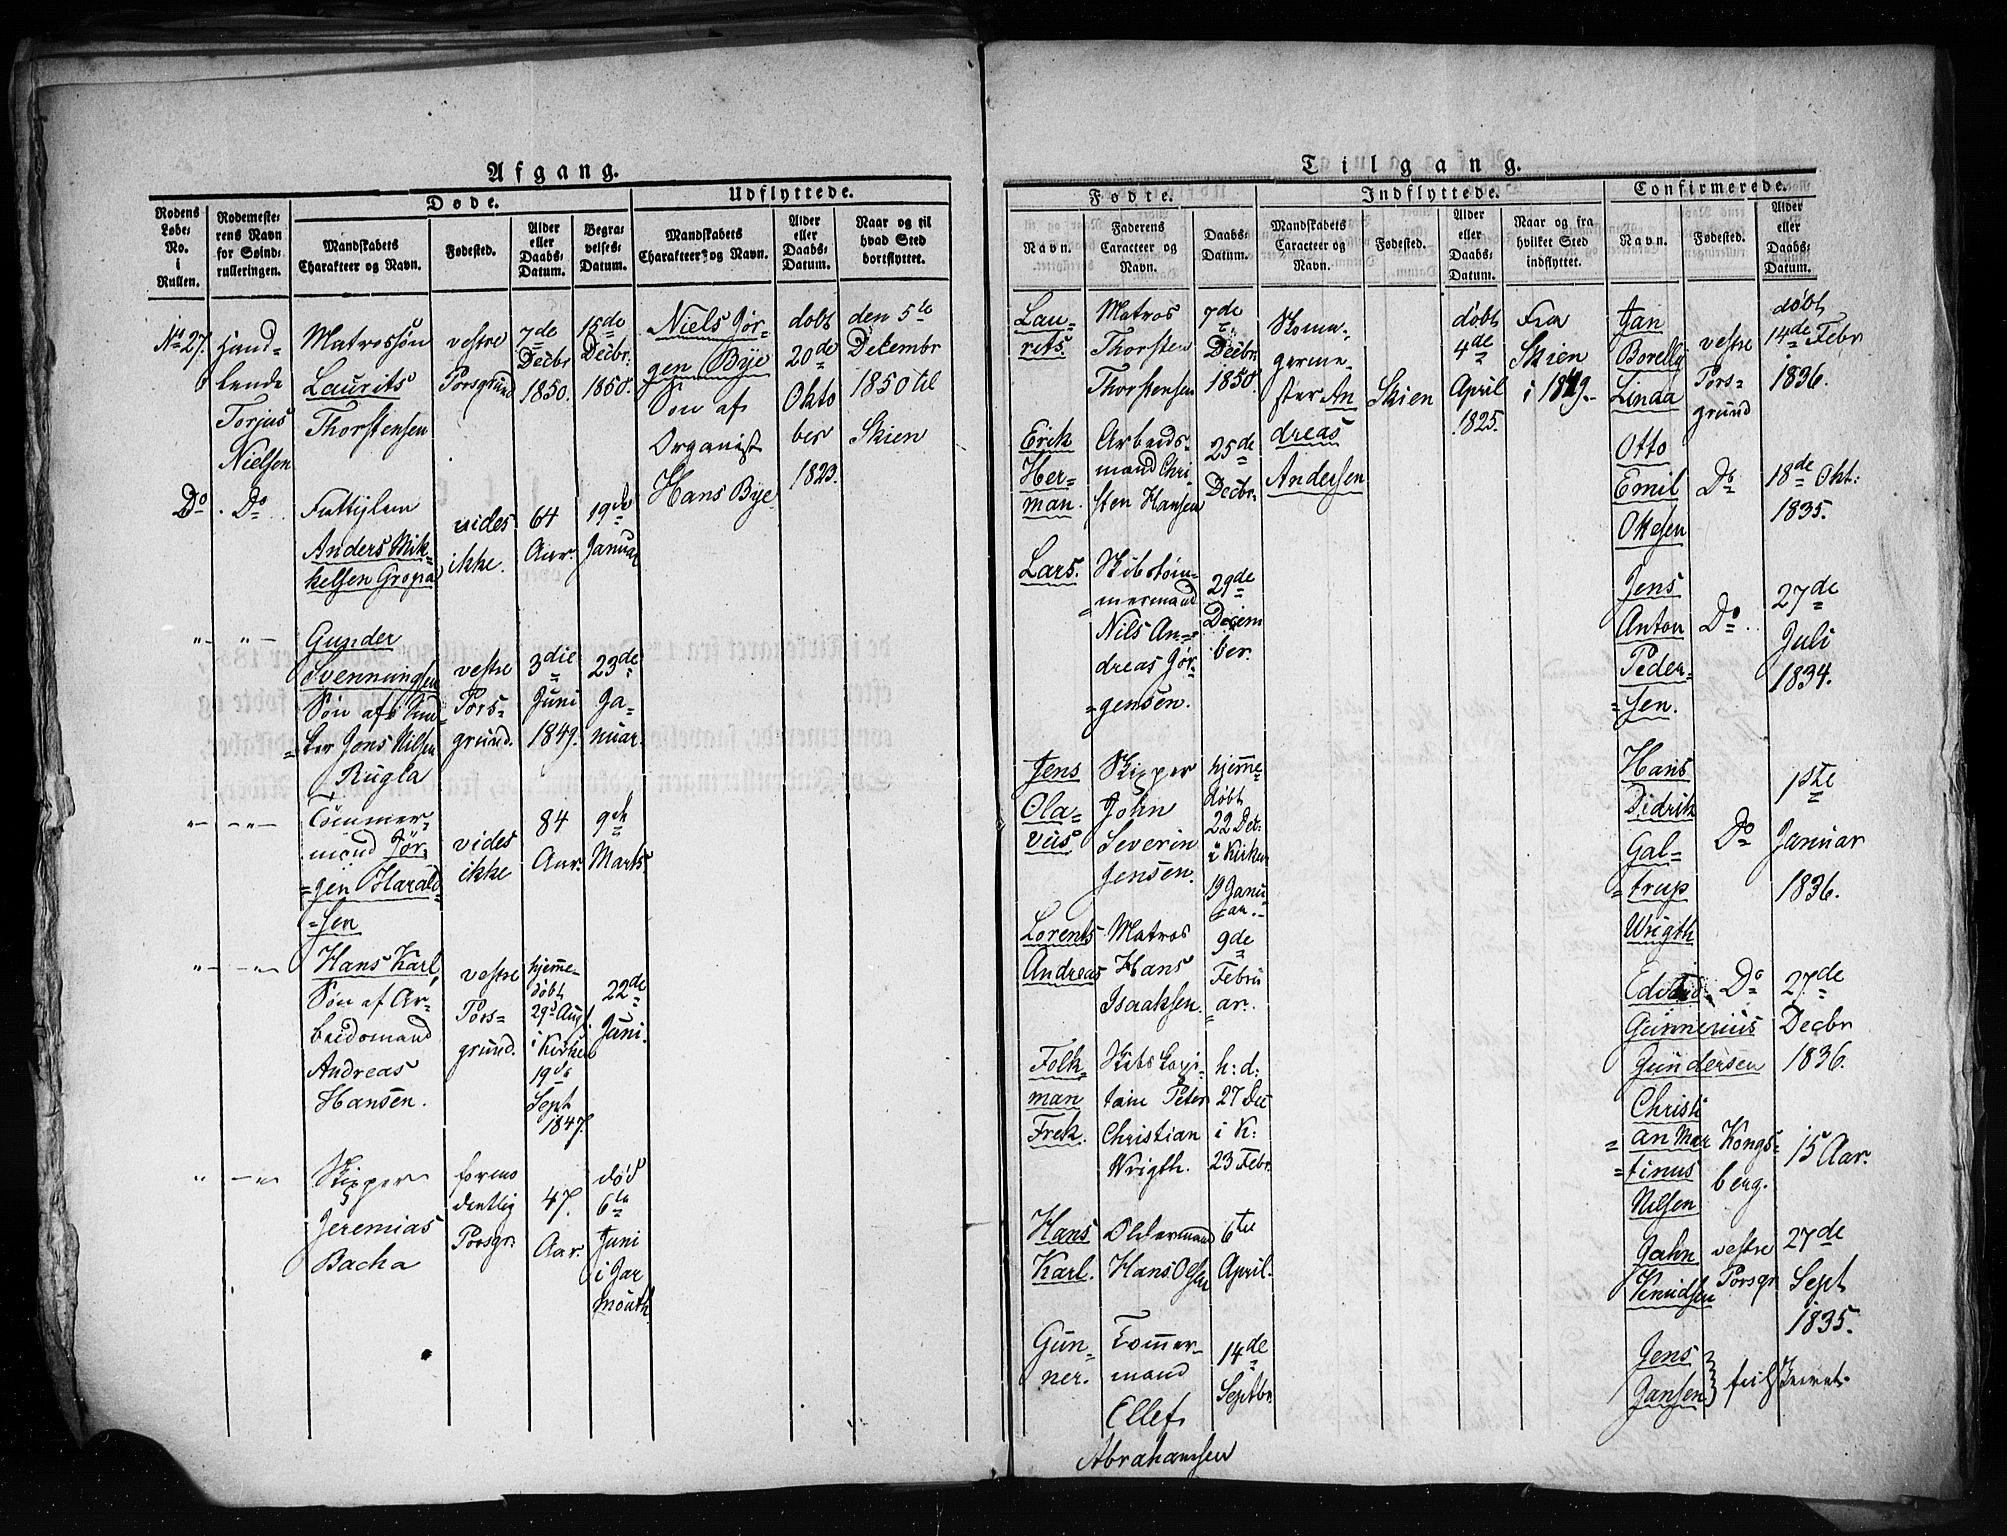 Afgang.
Døde.
Udflyttede.
Rodens Løbe-No. i Rullen.
Rodemesterens Navn for Søindrulleringen.
Mandskabets Charakteer og Navn.
Fødested.
Alder eller Daabs-Datum.
Begravelses-Datum.
Mandskabets Charakteer og Navn.
Alder eller Daabs-Datum.
Naar og til hvad Sted bortflyttet.
No 27.
Hand-
lende
Torjus
Nielsen
Matrossøn
Laurits
Thorstensen
vestre
Porsgrund
7de
Decbr
1850.
15de
Decbr.
1850.
Niels Jør-
gen Bye
Søn af
Organist
Hans Bye
døbt
20de
Okto
ber
1823.
den 5te
Decembr
1850 til
Skien
Do
Do
Fattiglem
Anders Mik-
kelsen Gropa
vides
ikke.
64
Aar.
19de
Januar
Gunder
Svenningsen
Søn af
Jens Nilsen
Rugla
vestre
Pors-
grund.
3die
Juni
1849.
23de
Ja-
nuar.
Tømmer-
mand Jør-
gen Harald-
sen
vides
ikke
84
Aar.
9de
Marts.
Hans Karl,
Søn af Ar-
beidsmand
Andreas
Hansen.
vestre
Pors-
grund.
hjemme-
døbt
29d Aug.
i Kirken
19de
Sept
1847.
22de
Juni.
Skipper
Jeremias
Bacha
formo
dentlig
Porsgr.
47.
Aar.
død
6te
Juni
i Jar
mouth
Tilgang.
Fødte.
Indflyttede.
Confirmerede.
Navn.
Faderens Caracteer og Navn.
Daabs-Datum.
Mandskabets Caracteer og Navn.
Fødested.
Alder eller Daabs-Datum.
Naar og fra hvilket Sted indflyttet.
Navn.
Fødested.
Alder eller Daabs-Datum.
Lau-
rits.
Matros
Thorsten
Thorstensen
7de
Decbr.
1850.
Skoma-
germe-
ster An
dreas
Andersen
Skien
døbt
4de
April
1825.
Fra
Skien
i 1849.
Jan
Borelly
Linda
vestre
Pors-
grund
døbt
14de Febr
1836.
Erik
Her-
man.
Arbeids-
mand Chri-
sten Hansen
25de
Decbr.
Otto
Emil
Ottesen
Do
18de Okt:
1835.
Lars.
Skibstøm-
mermand
Nils An-
dreas Jør-
gensen.
29de
Decem
ber.
Jens
Anton
Peder-
sen.
Do
27de
Juli
1834.
Jens
Ola-
vus
Skipper
John
Severin
Jensen.
hjemme-
døbt
22 Dec:
i Kirken
19 Janu-
ar.
Hans
Didrik
Gal-
trup
Wrigth
Do
1ste
Januar
1836.
Lorents
Andreas
Matros
Hans
Isaaksen.
9de
Febru
ar.
Edvard
Gunnerius
Gundersen
Do
27de
Decbr
1836.
Folk-
man
Frek.
Skibskapi-
tain Peter
Christian
Wrigth.
h: d:
27 Dec
i K:
23 Febr.
Christi
an Mar
tinus
Nilsen
Kongs-
berg.
15 Aar.
Hans
Karl.
Oldermand
Hans Olsen
6te
April.
Jahn
Knudsen
vestre
Porsgr
27de
Sept
1835.
Gun-
ner.
Tømmer-
mand
Ellef
Abrahamsen
14de
Septbr.
Jens
Jansen